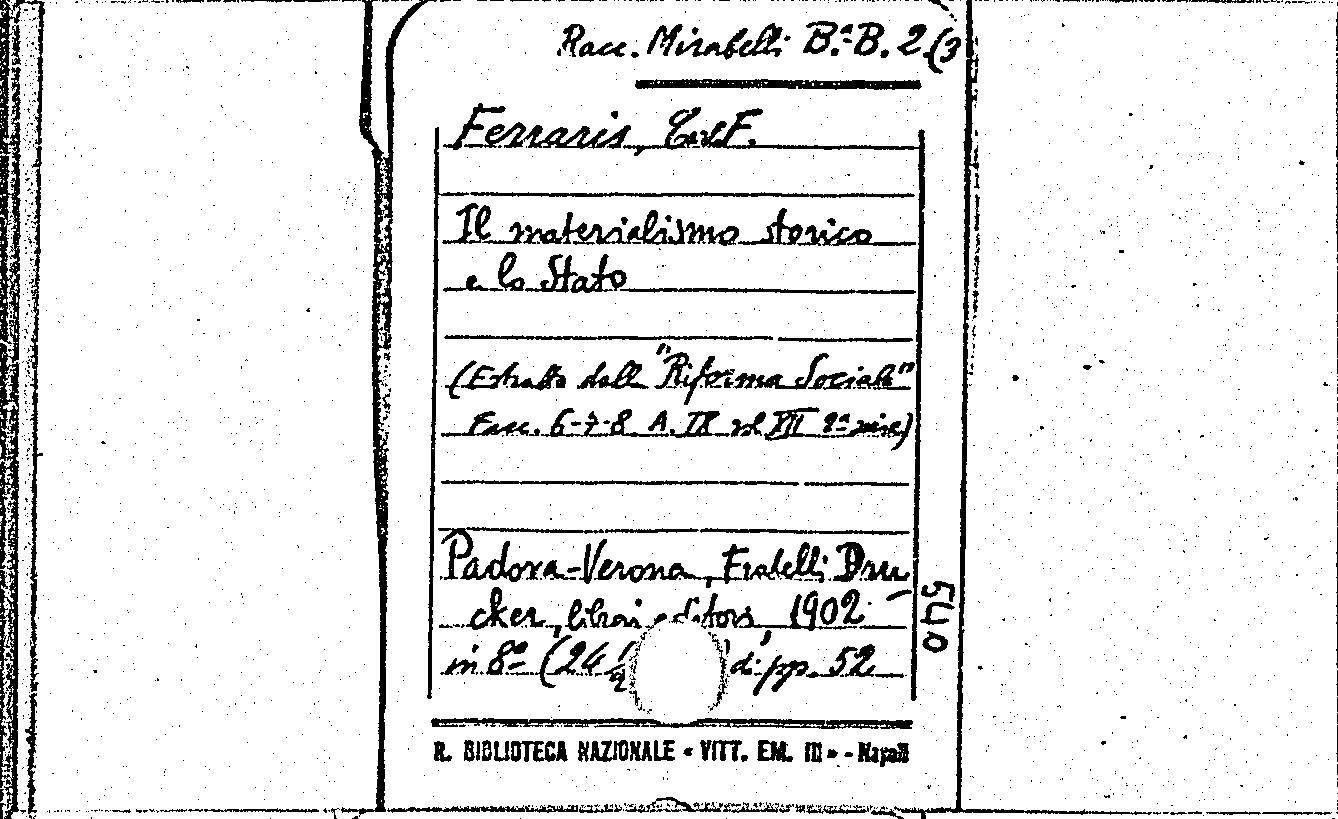 Racc. Mirabelli B.ª B. 2 (3
Ferraris, Carl F.
Il materialismo storico
e lo Stato
(Estratto dalla "Riforma Sociale"
Fasc. 6-7-8 A. IX vol XII 2ª serie)
Padova-Verona, Fratelli Dru-
cker, librai editori, 1902
in 8º (24 di pp. 52
540
R. BIBLIOTECA NAZIONALE « VITT. EM. III » - Napoli